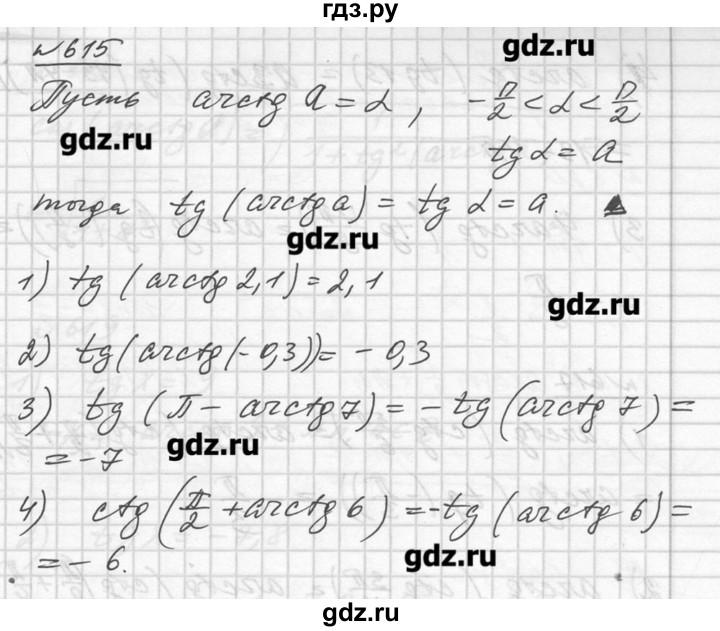 гдз.ру
№615
gdz.ru
Пусть arctg a = α , -π/2 < α < π/2
gdz.ru
tg α = a
тогда tg (arctg a) = tg α = a. ▲
gdz.ru
1) tg (arctg 2,1) = 2,1
gdz.ru
2) tg(arctg(-0,3)) = -0,3
3) tg (π - arctg 7) = -tg (arctg 7) =
gdz.ru
= -7
4) ctg (π/2 + arctg 6) = -tg (arctg 6) =
= -6.
gdz.ru
gdz.ru